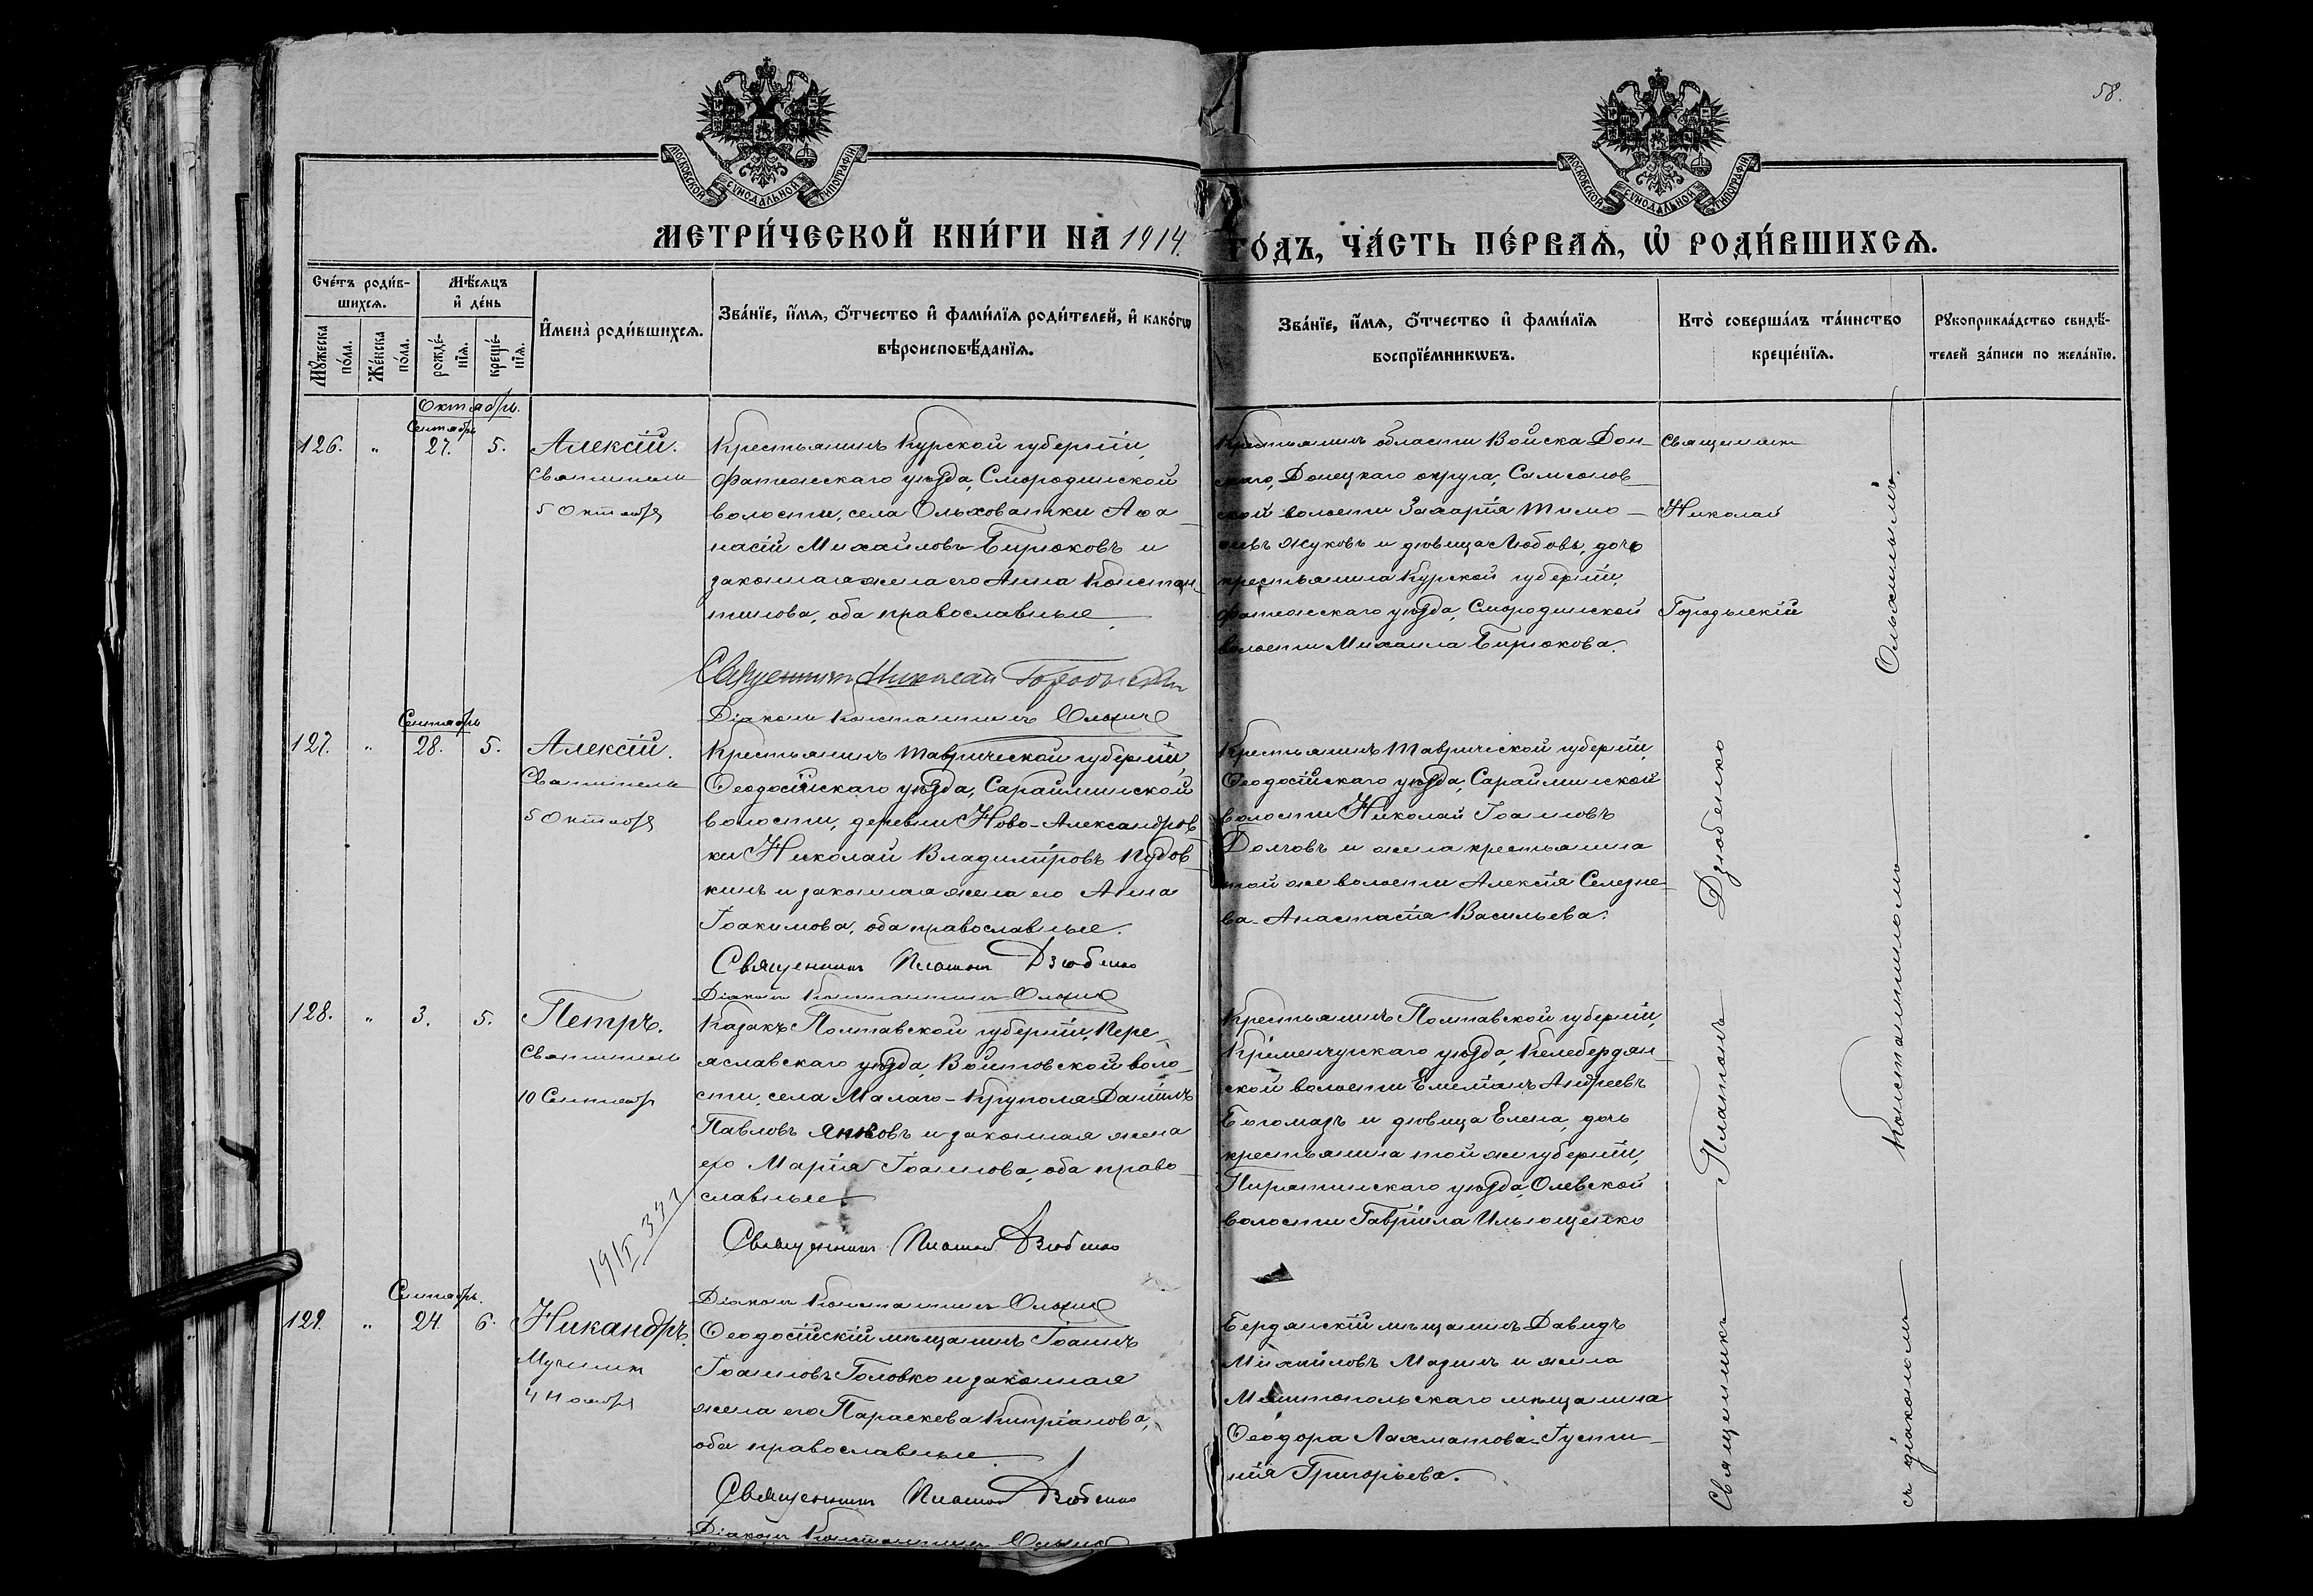 58.
МОСКОВСКОЙ СѴНОДАЛЬНОЙ ТИПОГРАФІИ
МОСКОВСКОЙ СѴНОДАЛЬНОЙ ТИПОГРАФІИ
МЕТРИ́ЧЕСКОЙ КНИ́ГИ НА 1914.
ГО́ДЪ, ЧА́СТЬ ПЕ́РВАѦ, Ѡ҆ РОДИ́ВШИХСѦ.
Сче́тъ роди́в-
шихсѧ.
Мꙋ́жеска по́ла.
Же́нска по́ла.
Мѣ́сѧцъ
и҆ де́нь
рожде́-нїѧ.
креще́-нїѧ.
И҆мена̀ роди́вшихсѧ.
Зва́нїе, и҆́мѧ, ѻ҆́тчество и҆ фами́лїѧ роди́телей, и҆ како́гѡ
вѣроисповѣ́данїѧ.
Зва́нїе, и҆́мѧ, ѻ҆́тчество и҆ фами́лїѧ
воспрїе́мникѡвъ.
Кто̀ соверша́лъ та́инство
креще́нїѧ.
Рꙋкоприкла́дство свидѣ́-
телей за́писи по жела́нїю.
Октябрь.
Сентябрь
126. " 27. 5. Алексій.
Святитель
5 Октября
Крестьянинъ Курской губерніи,
Фатежскаго уѣзда, Смородинской
волости, села Ольховатки Аѳа-
насій Михайловъ Бирюковъ и
законная жена его Анна Констан-
тинова, оба православные.
Священникъ Николай Городынскій
Діаконъ Константинъ
Крестьянинъ области Войска Дон-
скаго, Донецкаго округа, Самсонов-
ской волости Захарія Тимо-
ѳевъ Жуковъ и дѣвица Любовь, дочь
крестьянина Курской губерніи,
Фатежскаго уѣзда, Смородинской
волости Михаила Бирюкова.
Священникъ
Николай
Городынскій
Сентябрь
127. " 28. 5. Алексій.
Святитель
5 Октября
Крестьянинъ Таврической губерніи,
Ѳеодосійскаго уѣзда, Сарайминской
волости, деревни Ново-Александров-
ки Николай Владиміровъ Пудов-
кинъ и законная жена его Анна
Іоакимова, оба православные.
Священникъ Платонъ Дзюбенко
Діаконъ Константинъ
Крестьянинъ Таврической губерніи,
Ѳеодосійскаго уѣзда, Сарайминской
волости Николай Іоанновъ
Долговъ и жена крестьянина
той же волости Алексія Селезне-
ва - Анастасія Васильева.
128. " 3. 5. Петръ.
Святитель
10 Сентября
1915
Казакъ Полтавской губерніи, Пере-
яславскаго уѣзда, Войтовской воло-
сти, села Малаго-Крупола Даніилъ
Павловъ Янковъ и законная жена
его Марія Іоаннова, оба право-
славные
Священникъ Платонъ Дзюбенко
Діаконъ Константинъ
Крестьянинъ Полтавской губерніи,
Кременчугскаго уѣзда, Келебердян-
ской волости Емеліанъ Андреевъ
Богомазъ и дѣвица Елена, дочь
крестьянина той же губерніи,
Пирятинскаго уѣзда, Олевской
волости Гавріила Ильющенко
Сентябрь.
129. " 24 6. Никандръ.
Мученикъ
4 Ноября
Ѳеодосійскій мѣщанинъ Іоаннъ
Іоанновъ Головко и законная
жена его Параскева Кипріанова,
оба православные.
Священникъ Платонъ Дзюбенко
Діаконъ Константинъ
Бердянскій мѣщанинъ Давидъ
Михайловъ Мазинъ и жена
Мелитопольскаго мѣщанина
Ѳеодора Лахматова - Іусти-
нія Григорьева.
Священникъ Платонъ Дзюбенко
съ діакономъ Константиномъ